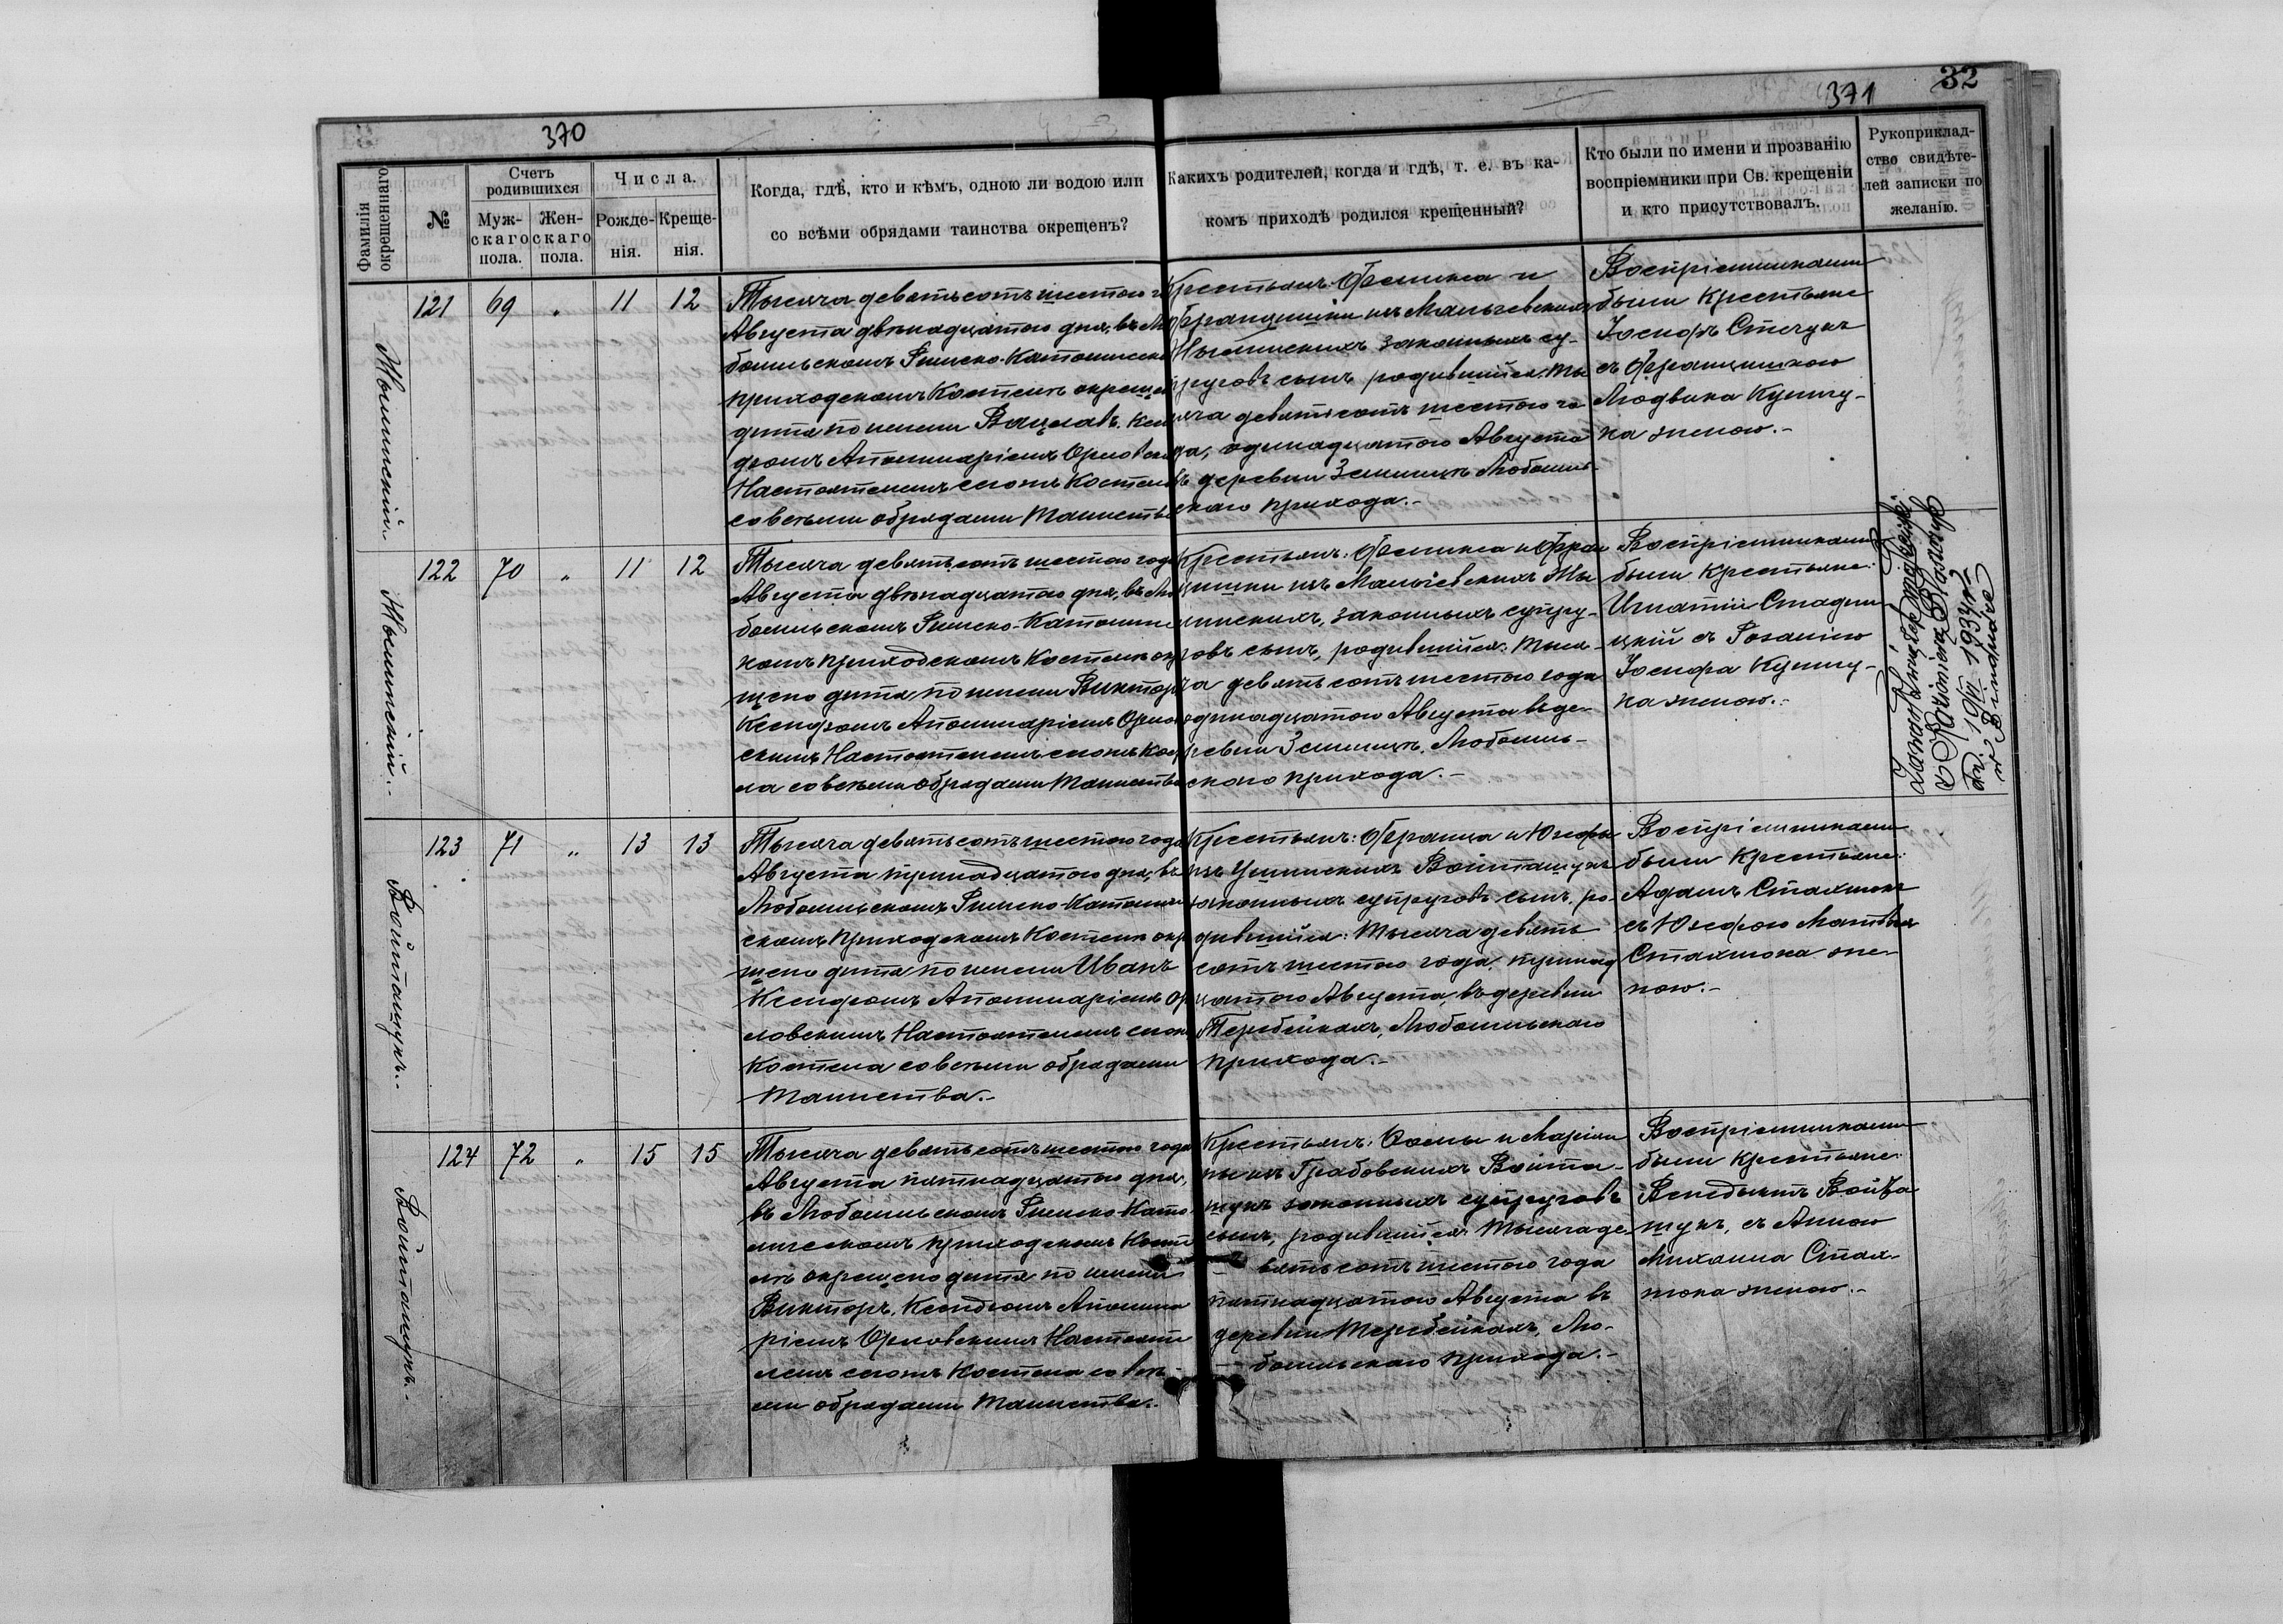 370
371
32
Фамилія окрещеннаго.
№
Счетъ родившихся
Муж-
скаго
пола.
Жен-
скаго
пола.
Числа.
Рожде-
нія.
Креще-
нія.
Когда, гдѣ, кто и кѣмъ, одною ли водою или
со всѣми обрядами таинства окрещенъ?
Какихъ родителей, когда и гдѣ, т. е. въ ка-
комъ приходѣ родился крещенный?
Кто были по имени и прозванію
воспріемники при Св. крещеніи
и кто присутствовалъ.
Рукоприклад-
ство свидѣте-
лей записки по
желанію.
121 69 „ 11 12
Тысяча девятьсотъ шестого
Августа двѣнадцатого дня, въ Лю
бомльскомъ Римско-Католическо
приходскомъ Костелѣ окрещено
дитя по имени Вацлавъ. Ксен
дзомъ Аполинаріемъ Орловским
Настоятелемъ сего Костела
со всѣми обрядами Таинства
Крестьянъ: Феликса и
Францишки изъ Мальчевскихъ
законныхъ су-
пруговъ сынъ, родившійся: Ты
сяча девятьсотъ шестого го
да, одинадцатого Августа
въ деревни Землицѣ Любомль-
скаго прихода.-
Воспріемниками
были Крестьяне
Іосифъ
съ Францишкою
Людвика
ка женою.-
122 70 „ 11 12
Тысяча девятьсотъ шестого года
Августа двѣнадцатаго дня, въ Лю
бомльскомъ Римско-Католиче
комъ приходскомъ Костелѣ окр
щено дитя по имени Викторъ
Ксендзомъ Аполинаріемъ Орлов
скимъ Настоятелемъ сего Косте
ла со всѣми обрядами Таинства
Крестьянъ: Феликса и Фран
цишки изъ Мальчевскихъ
законныхъ супру-
говъ сынъ, родившійся: Тыся-
ча девятьсотъ шестого года
одинадцатого Августа въ де-
ревни Землицѣ, Любомль-
скаго прихода.-
Воспріемниками
были Крестьяне:
Игнатій Стадни
цкій съ Розаліею
Іосифа
ка женою.-
10/VII 1934 r.
123 71 „ 13 13
Войтащукъ.-
Тысяча девятьсотъ шестого года
Августа тринадцатого дня, въ
Любомльскомъ Римско-Католиче
скомъ Приходскомъ Костелѣ окр
щено дитя по имени Иванъ
Ксендзомъ Аполинаріемъ Ор
ловскимъ Настоятелемъ сего
Костела со всѣми обрядами
Таинства.-
Крестьянъ: Франца и Юзефы
изъ Войтащукъ
законныхъ супруговъ сынъ, ро-
дившійся: Тысяча девять
сотъ шестого года, тринад
цатого Августа, въ деревни
Теребейкахъ, Любомльскаго
прихода.-
Воспріемниками
были Крестьяне:
Адамъ
съ Юзефою Матвѣя
же-
ною.-
124 72 „ 15 15
Войтащукъ.-
Тысяча девятьсотъ шестого года
Августа пятнадцатого дня,
въ Любомльскомъ Римско-Като
лическомъ приходскомъ Косте
лѣ окрещено дитя по имени
Викторъ. Ксендзомъ Аполина
ріемъ Орловскимъ Настояте
лемъ сего Костела со всѣ-
ми обрядами Таинства.-
Крестьянъ: Фомы и Маріан
ны изъ Грабовскихъ Войта-
щукъ законныхъ супруговъ
сынъ, родившійся: Тысяча де
вятьсотъ шестого года
пятнадцатого Августа въ
деревни Теребейкахъ, Лю-
бомльскаго прихода.-
Воспріемниками
были Крестьяне:
Венедыктъ Войта
щукъ, съ Анною
Михаила
женою.-